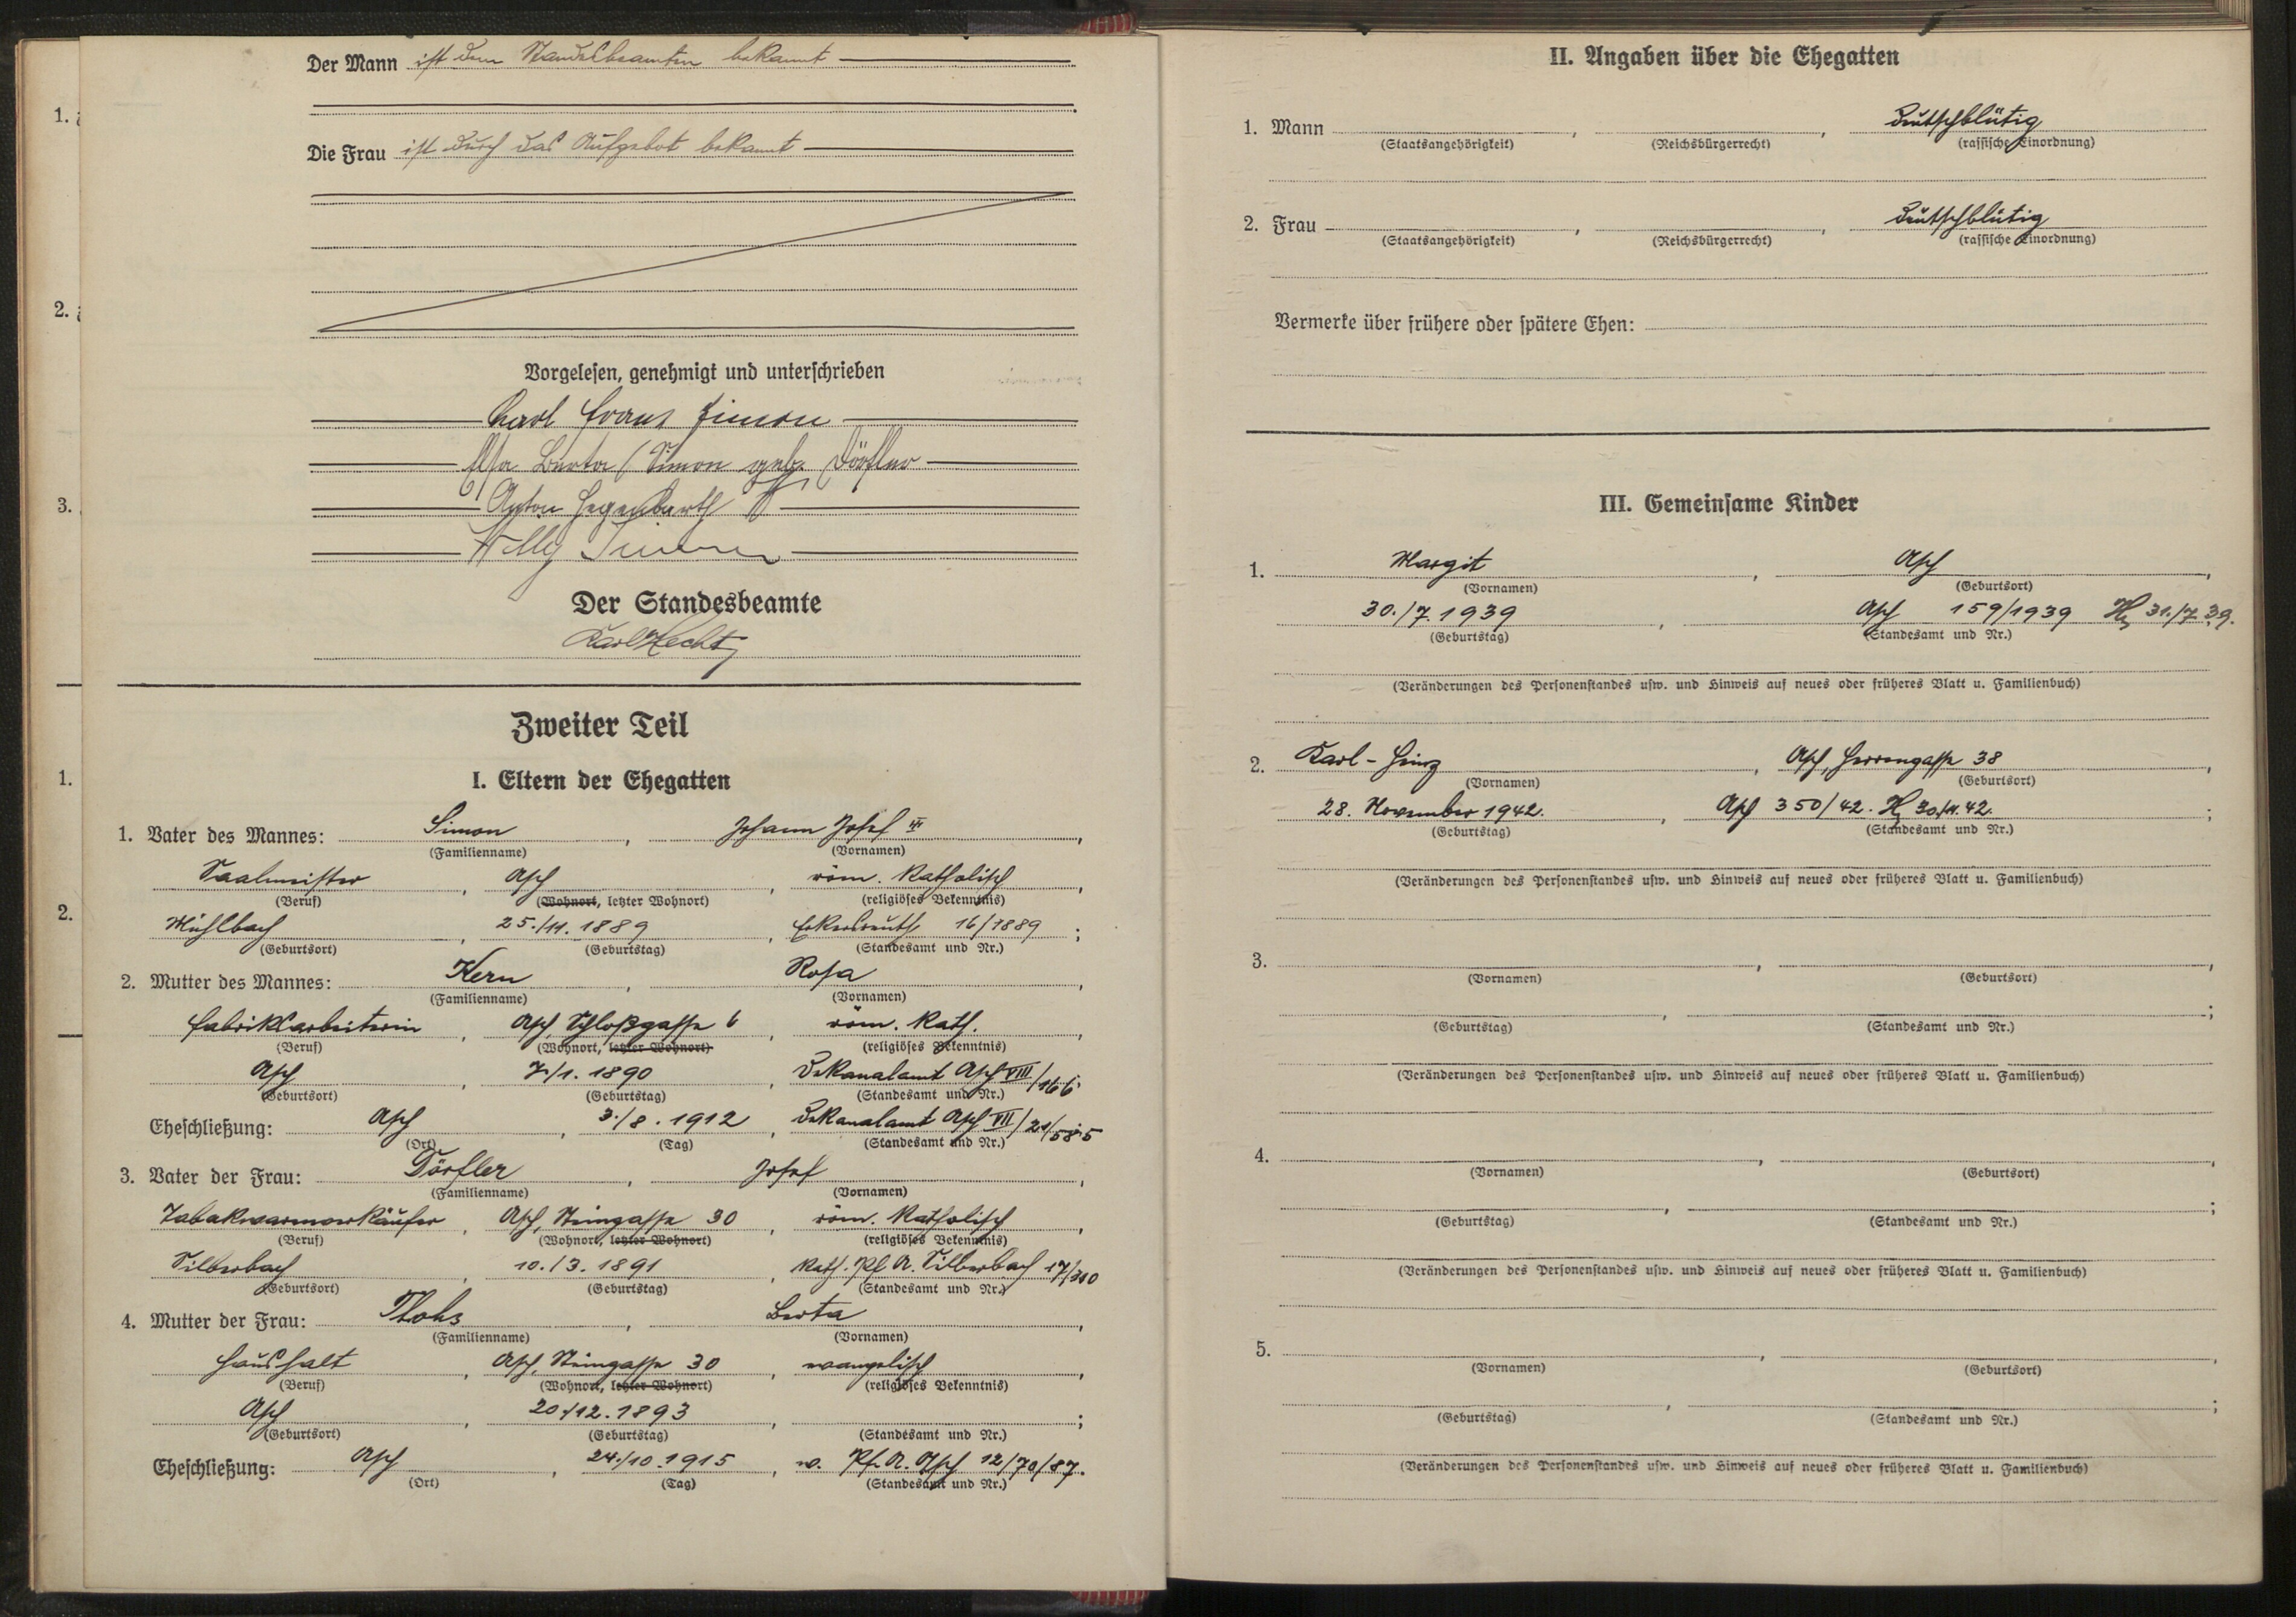 Der Mann ist dem Standesbeamten bekannt
Die Frau ist durch das Aufgebot bekannt
Vorgelesen, genehmigt und unterschrieben
Karl Franz Simon
Elsa Berta Simon geb. Dörfler
Anton Hegenbarth
Willy
Der Standesbeamte
Karl Hecht
Zweiter Teil
I. Eltern der Ehegatten
1. Vater des Mannes: Simon, Johann Josef
(Familienname) (Vornamen)
Saalmeister, Asch, röm. katholisch,
(Beruf) (Wohnort, letzter Wohnort) (religiöses Bekenntnis)
Mühlbach, 25./11. 1889, 16/1889;
(Geburtsort) (Geburtstag) (Standesamt und Nr.)
2. Mutter des Mannes: Kern, Rosa,
(Familienname) (Vornamen)
Fabriksarbeiterin, Asch, Schloßgasse 6, röm. kath.,
(Beruf) (Wohnort, letzter Wohnort) (religiöses Bekenntnis)
Asch, 7./1. 1890, Dekanalamt Asch VIII/166;
(Geburtsort) (Geburtstag) (Standesamt und Nr.)
Eheschließung: Asch, 3./8. 1912, Dekanalamt Asch VII/21/585
(Ort) (Tag) (Standesamt und Nr.)
3. Vater der Frau: Dörfler, Josef,
(Familienname) (Vornamen)
Asch, Steingasse 30, röm. katholisch,
(Beruf) (Wohnort, letzter Wohnort) (religiöses Bekenntnis)
Silberbach, 10./3. 1891, kath. Pf. A. Silberbach 17/310
(Geburtsort) (Geburtstag) (Standesamt und Nr.)
4. Mutter der Frau: Ploß, Berta,
(Familienname) (Vornamen)
Haushalt, Asch, Steingasse 30, evangelisch,
(Beruf) (Wohnort, letzter Wohnort) (religiöses Bekenntnis)
Asch, 20./12. 1893, ;
(Geburtsort) (Geburtstag) (Standesamt und Nr.)
Eheschließung: Asch, 24./10. 1915, ev. Pf. A. Asch 12/70/87.
(Ort) (Tag) (Standesamt und Nr.)
1.
2.
3.
1.
2.
II. Angaben über die Ehegatten
1. Mann , , deutschblütig
(Staatsangehörigkeit) (Reichsbürgerrecht) (rassische Einordnung)
2. Frau , , deutschblütig
(Staatsangehörigkeit) (Reichsbürgerrecht) (rassische Einordnung)
Vermerke über frühere oder spätere Ehen:
III. Gemeinsame Kinder
1. Margit, Asch,
(Vornamen) (Geburtsort)
30./7. 1939, Asch 159/1939 H 31./7. 39.
(Geburtstag) (Standesamt und Nr.)
(Veränderungen des Personenstandes usw. und Hinweis auf neues oder früheres Blatt u. Familienbuch)
2. Karl-Heinz, Asch, Herrengasse 38,
(Vornamen) (Geburtsort)
28. November 1942., Asch 350/42. H 30/11. 42. ;
(Geburtstag) (Standesamt und Nr.)
(Veränderungen des Personenstandes usw. und Hinweis auf neues oder früheres Blatt u. Familienbuch)
3. , ,
(Vornamen) (Geburtsort)
, ;
(Geburtstag) (Standesamt und Nr.)
(Veränderungen des Personenstandes usw. und Hinweis auf neues oder früheres Blatt u. Familienbuch)
4. , ,
(Vornamen) (Geburtsort)
, ;
(Geburtstag) (Standesamt und Nr.)
(Veränderungen des Personenstandes usw. und Hinweis auf neues oder früheres Blatt u. Familienbuch)
5. , ,
(Vornamen) (Geburtsort)
, ;
(Geburtstag) (Standesamt und Nr.)
(Veränderungen des Personenstandes usw. und Hinweis auf neues oder früheres Blatt u. Familienbuch)